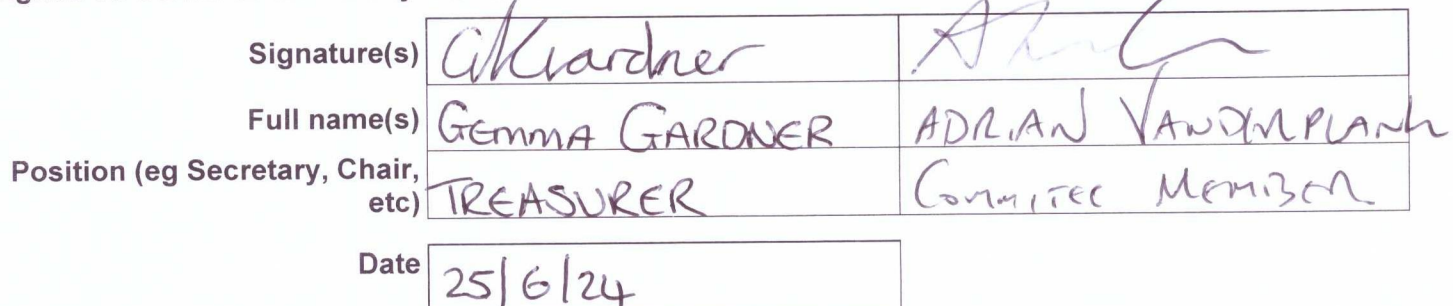 Signature(s) GKGardner
Full name(s) GEMMA GARDNER ADRIAN VANDERPLANK
Position (eg Secretary, Chair,
etc) TREASURER COMMITEE MEMBER
Date 25/6/24